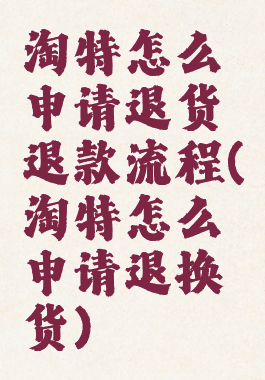 淘特怎么
申请退货
退款流程(
淘特怎么
申请退换
货)